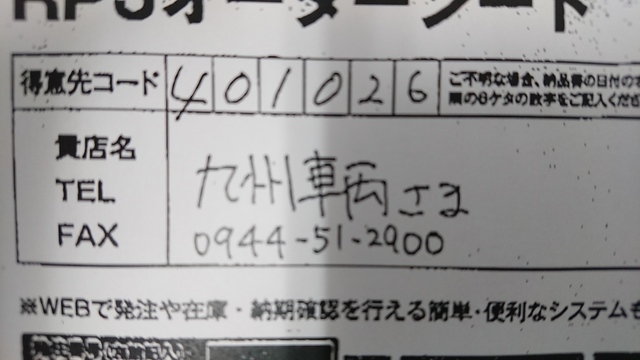 RPJオーダーシート
得意先コード 401026 ご不明な場合、納品書の日付の
欄の6ケタの数字をご記入くださ
貴店名
九州車両さま
TEL
FAX 0944-51-2900
※WEBで発注や在庫・納期確認を行える簡単・便利なシステムも